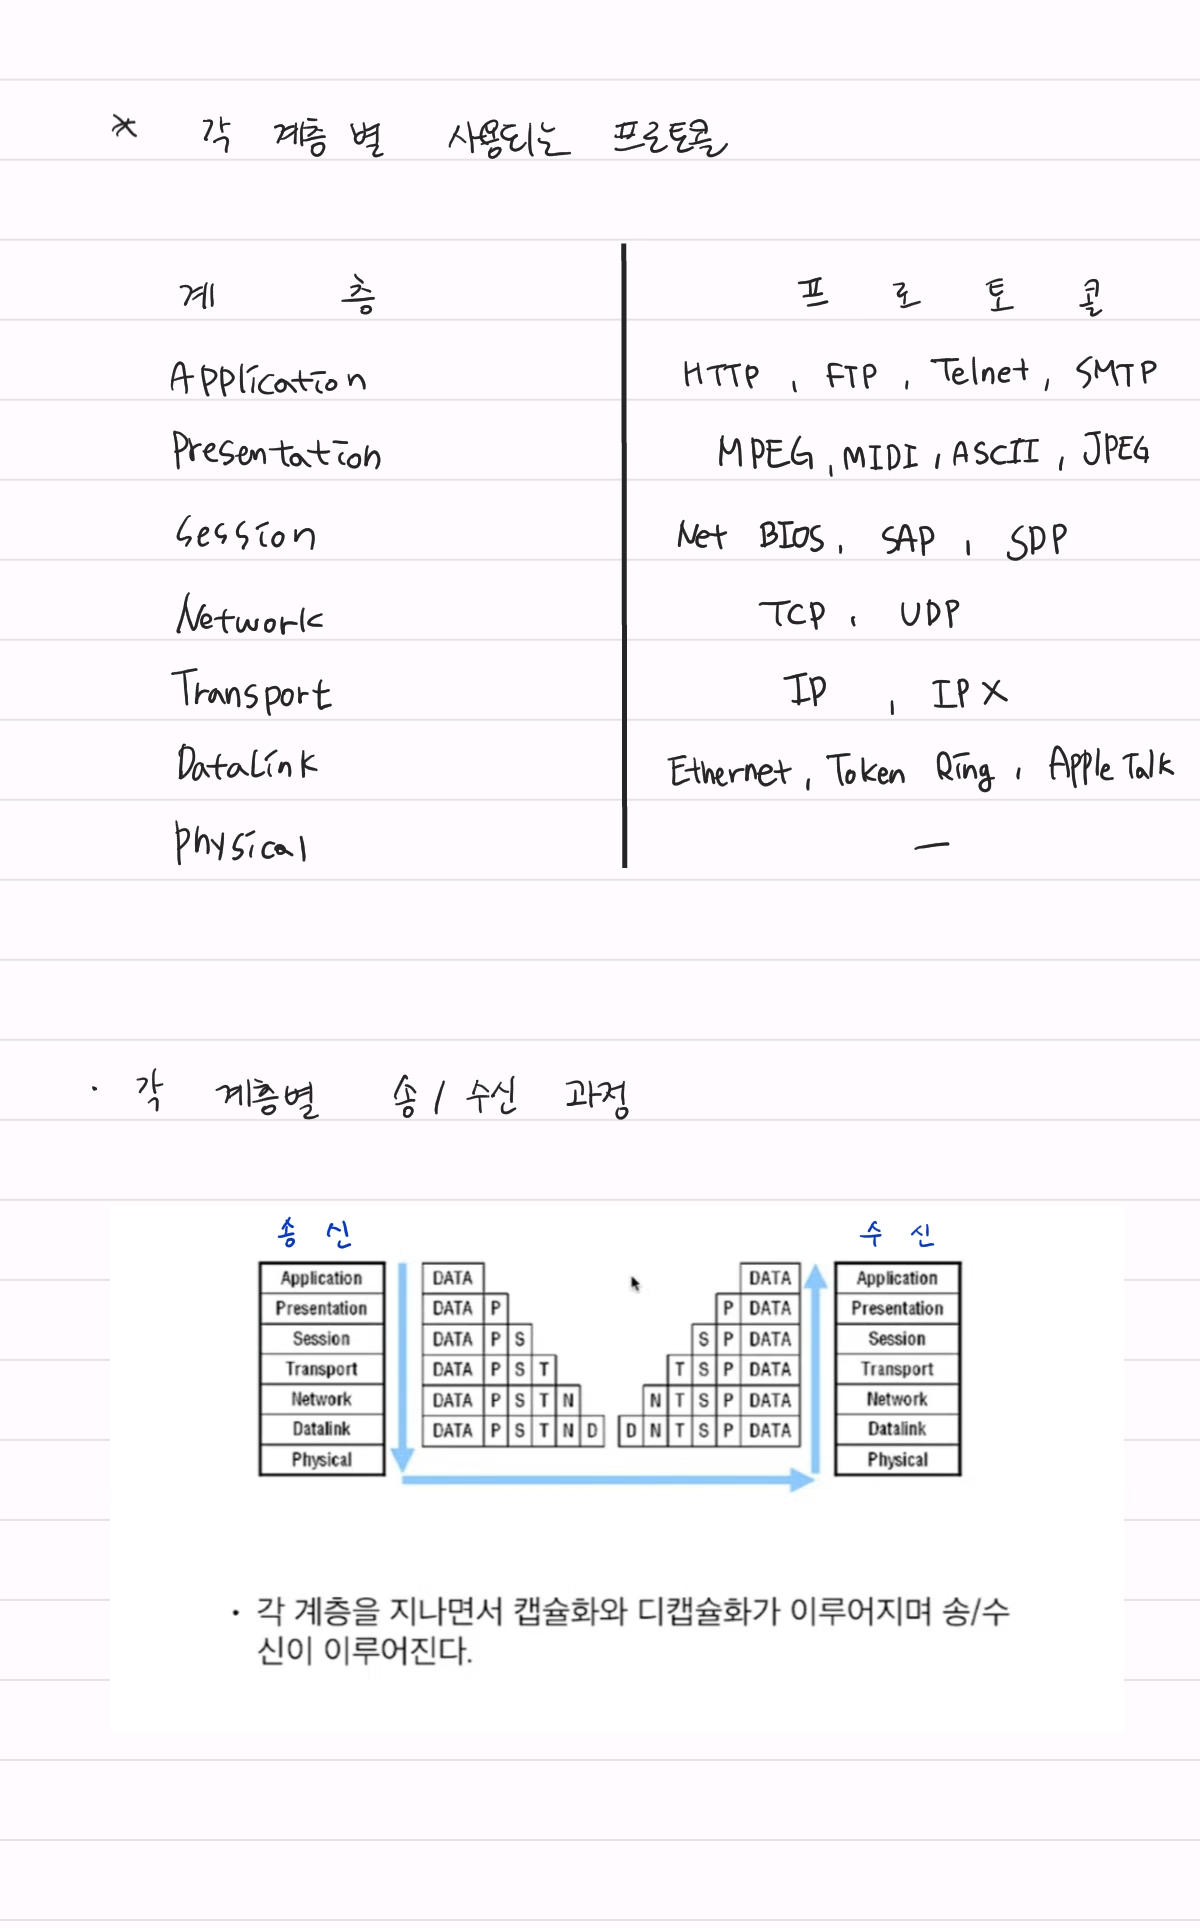 * 각 계층별 사용되는 프로토콜
계 층 프 로 토 콜
Application HTTP, FTP, Telnet, SMTP
Presentation MPEG, MIDI, ASCII, JPEG
Session Net BIOS, SAP, SDP
Network TCP, UDP
Transport IP, IPX
DataLink Ethernet, Token Ring, Apple Talk
physical —
· 각 계층별 송/수신 과정
송 신 수 신
Application DATA DATA Application
Presentation DATA P P DATA Presentation
Session DATA P S S P DATA Session
Transport DATA P S T T S P DATA Transport
Network DATA P S T N N T S P DATA Network
Datalink DATA P S T N D D N T S P DATA Datalink
Physical Physical
• 각 계층을 지나면서 캡슐화와 디캡슐화가 이루어지며 송/수
신이 이루어진다.